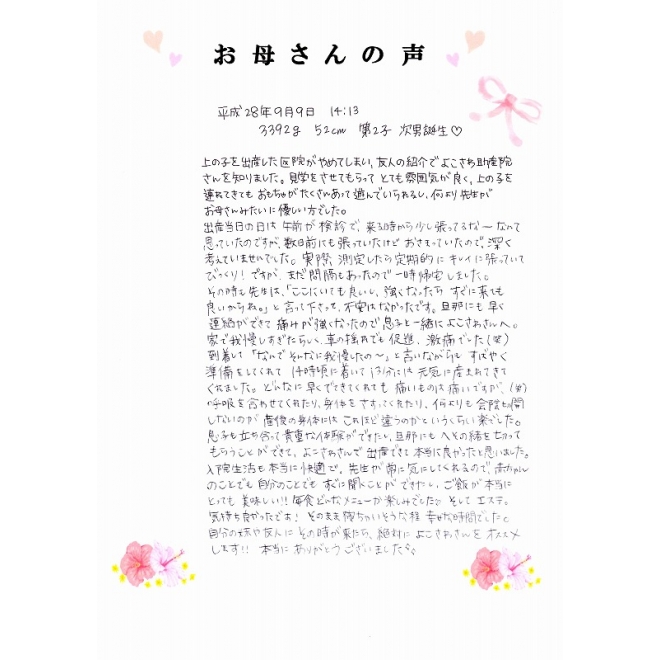 お母さんの声
平成28年9月9日 14:13
3392g 52cm 第2子 次男誕生♡
上の子を出産した医院がやめてしまい、友人の紹介でよこさわ助産院
さんを知りました。見学をさせてもらって とても雰囲気が良く、上の子を
連れてきても おもちゃがたくさんあって遊んでいられるし、何より先生が
お母さんみたいに優しい方でした。
出産当日の日は 午前が検診で、来る時から少し張ってるな〜なんて
思っていたのですが、数日前にも張っていたけど おさまっていたので、深く
考えていませんでした。実際、測定したら定期的に キレイに張っていて
びっくり！ですが、まだ間隔もあったので一時帰宅しました。
その時も先生は、「ここにいても良いし、強くなったら すぐに来ても
良いからね。」と言って下さって、不安はなかったです。旦那にも 早く
連絡ができて 痛みが強くなったので 息子と一緒に よこさわさんへ。
家で我慢しすぎたらしく、車の揺れでも 促進、激痛でした(笑)
到着して「なんで そんなに我慢したの〜」と言いながらも すばやく
準備をしてくれて 14時頃に着いて 13分には 元気に産まれてきて
くれました。どんなに早くでてきてくれても 痛いものは痛いですが、(笑)
呼吸を合わせてくれたり、身体をさすってくれたり、何よりも 会陰切開
しないのが 産後の身体には これほど違うのかというくらい 楽でした。
息子も立ち会って貴重な体験ができたし、旦那にも へその緒を切って
もらうことができて、よこさわさんで 出産できて本当に良かったと思いました。
入院生活も本当に快適で、先生が常に気にしてくれるので、赤ちゃん
のことでも 自分のことでも すぐに聞くことが できたし、ご飯が本当に
とっても 美味しい!! 毎食どんなメニューか楽しみでした♡ そして エステ。
気持ち良かったです！ そのまま寝ちゃいそうな程 幸せな時間でした。
自分の妹や友人に その時が来たら、絶対に よこさわさんを オススメ
します!! 本当に ありがとうございました